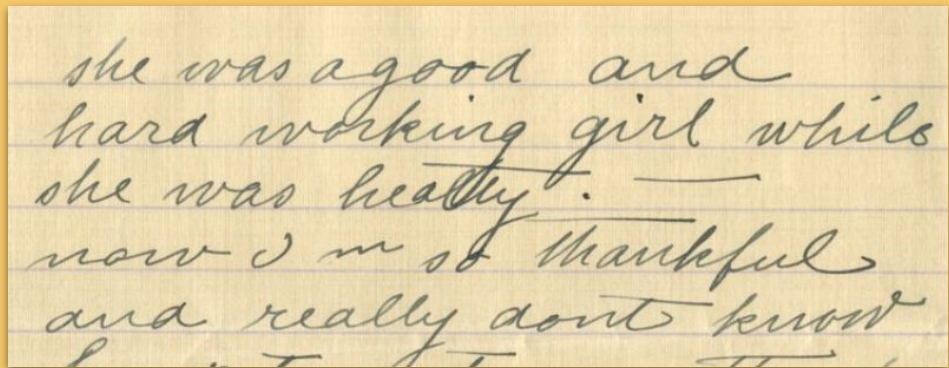 she was a good and
hard working girl while
she was healty . —
now I m so thankful
and really dont know